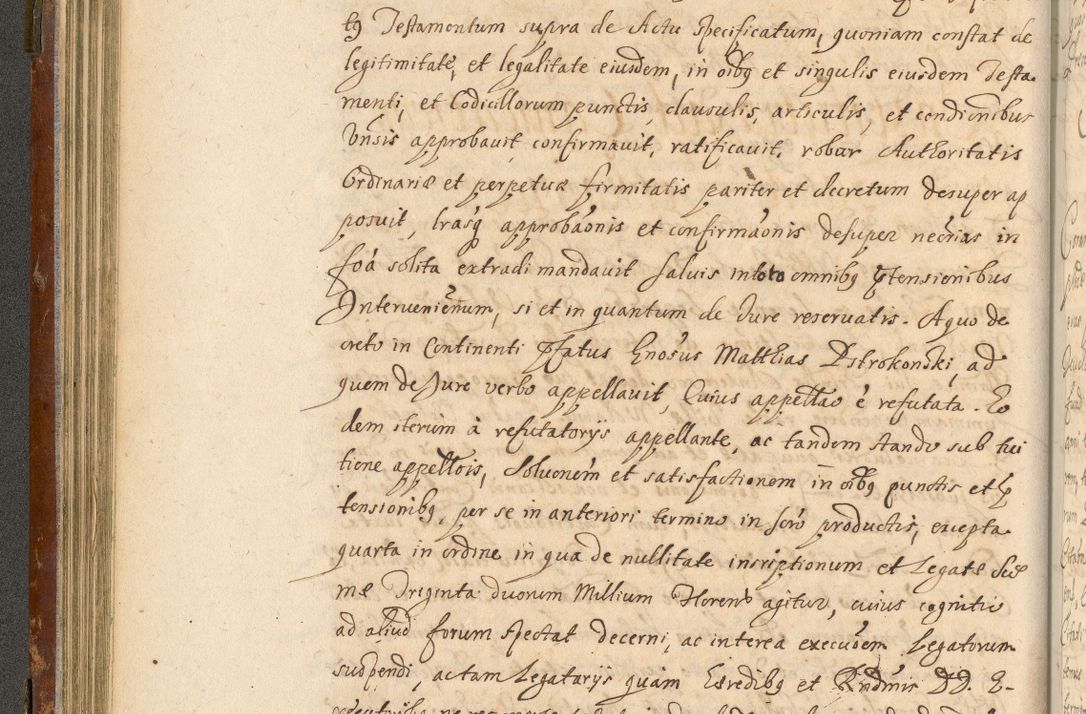 tg Testamentum supra de Actu specificatum, quoniam constat de
legitimitate, et legalitate eiusdem, in oibg et singulis eiusdem Testa-
menti, et Codicillorum punctis, clausulis, articulis, et condionibus
Vnsis approbauit, confirmauit, ratificauit, robur Authoritatis
Ordinariæ et perpetuæ firmitatis pariter et decretum desuper ap
posuit, lrasq approbaonis et confirmaonis desuper necrias in
foa solita extradi mandauit saluis in toto omnibg ptensionibus
Interuenienum, si et in quantum de Jure reseruatis. A quo de
creto in Continenti pfatus Gnosus Matthias Pstrokonski, ad
quem de Jure verbo appellauit, Cuius appellao è refutata. Eo
dem iterum à refutatorijs appellante, ac tandem stando sub tui
tione appellois, Soluonem et satisfactionem in oibg punctis et p
tensionibg, per se in anteriori termino in scro productis, excepta
quarta in ordine in qua de nullitate inscriptionum et Legatæ Sũ
mæ Triginta duorum Millium Floren agitur, cuius cognitio
ad aliud forum spectat decerni, ac interea execuoem Legatorum
suspendi, ac tam Legatarijs quam Hæredibg et Rndmis DD. E-